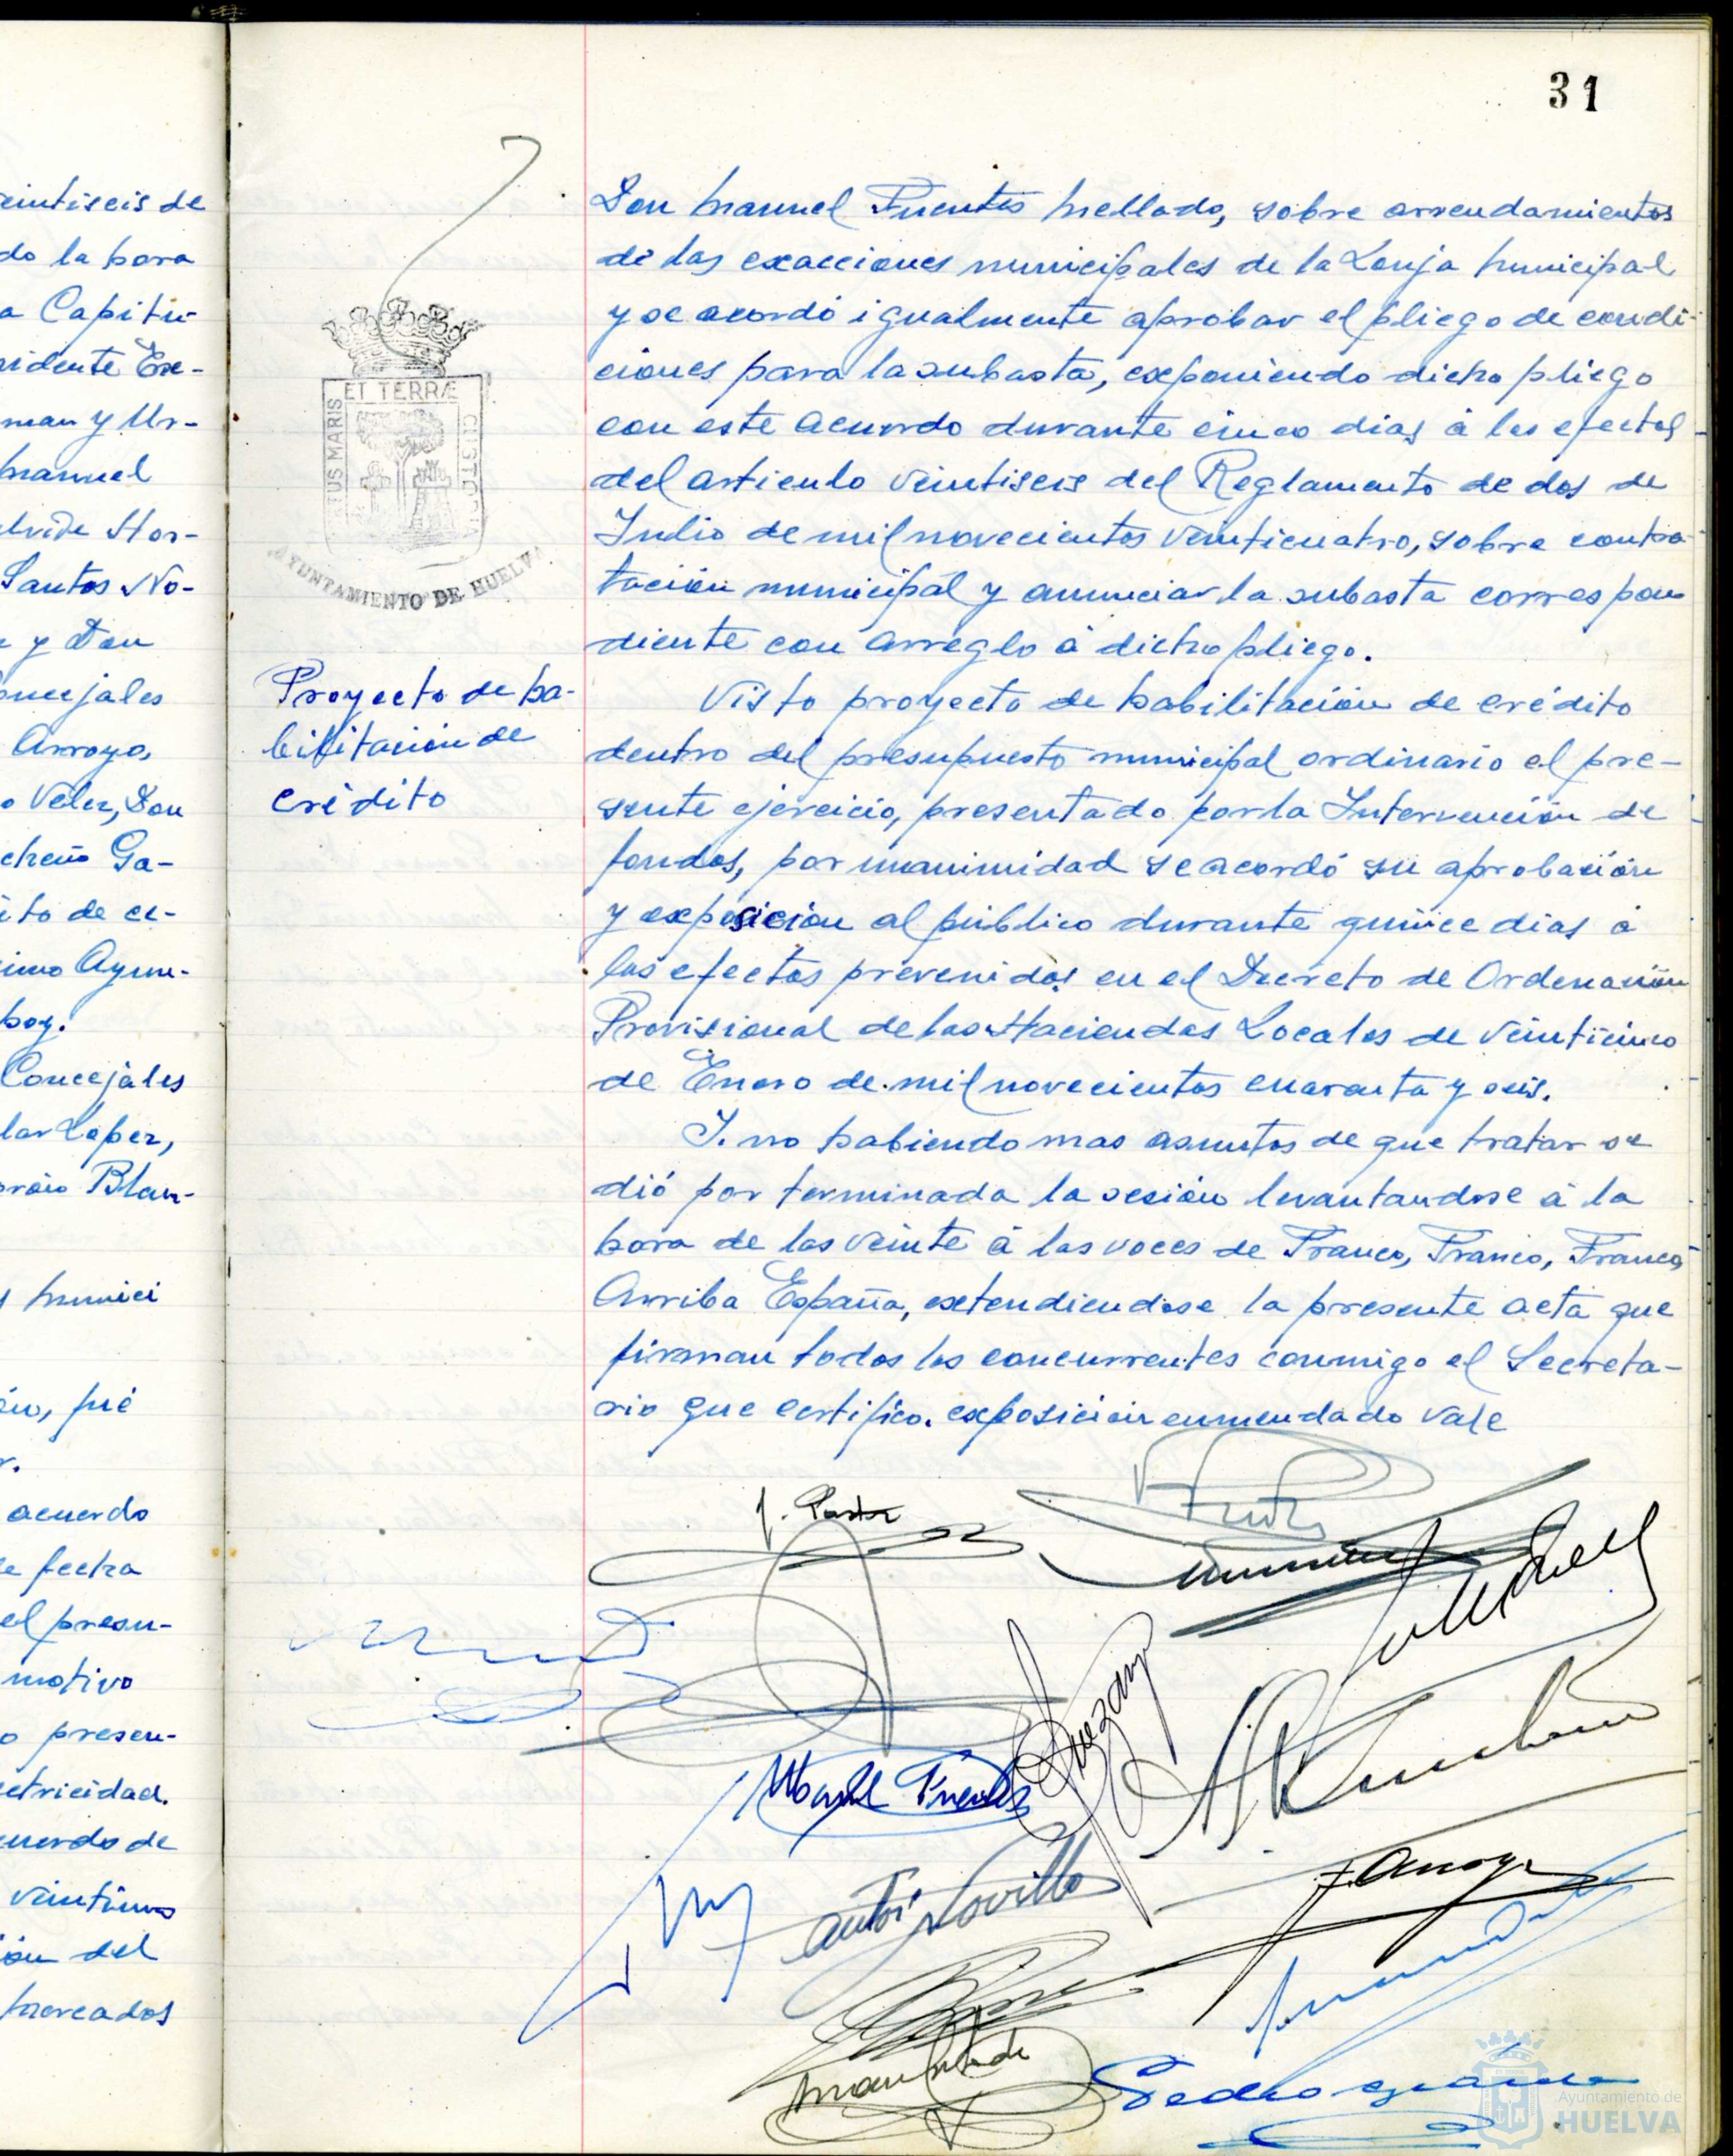 31
eintiseis de
do la hora
a Capitu-
sidente Exe-
man y Ur-
Manuel
Hor-
Santos No-
y Don
oncejales
Arroyo,
o Velez, Don
cheño Ga-
ito de ce-
imo Ayun-
hoy.
Concejales
lar Lopez,
Blan-
Munici
fué
r.
acuerdo
e fecha
el presu-
motivo
o presen-
ctricidad.
cuerdo de
veintiuno
ón del
Mercados
ET TERRÆ
US MARIS
CUSTODIA
AYUNTAMIENTO DE HUELVA
Proyecto de ha-
bilitación de
crédito
Don Manuel Fuentes Mellado, sobre arrendamientos
de las exacciones municipales de la Lonja Municipal
y se acordó igualmente aprobar el pliego de condi-
ciones para la subasta, exponiendo dicho pliego
con este acuerdo durante cinco dias á los efectos
del articulo veintiseis del Reglamento de dos de
Julio de mil novecientos veinticuatro, sobre contra-
tación municipal y anunciar la subasta correspon-
diente con arreglo á dicho pliego.
Visto proyecto de habilitación de crédito
dentro del presupuesto municipal ordinario el pre-
sente ejercicio, presentado por la Intervención de
fondos, por unanimidad se acordó su aprobación
y exposición al público durante quince dias á
los efectos prevenidos en el Decreto de Ordenación
Provisional de las Haciendas Locales de veinticinco
de Enero de mil novecientos cuarenta y seis.
Y no habiendo mas asuntos de que tratar se
dió por terminada la sesión levantandose á la
hora de las veinte á las voces de Franco, Franco, Franco,
Arriba España, extendiendose la presente acta que
firman todos los concurrentes conmigo el Secreta-
rio que certifico. exposición enmendado vale
Manuel Fuentes
Ayuntamiento de
HUELVA